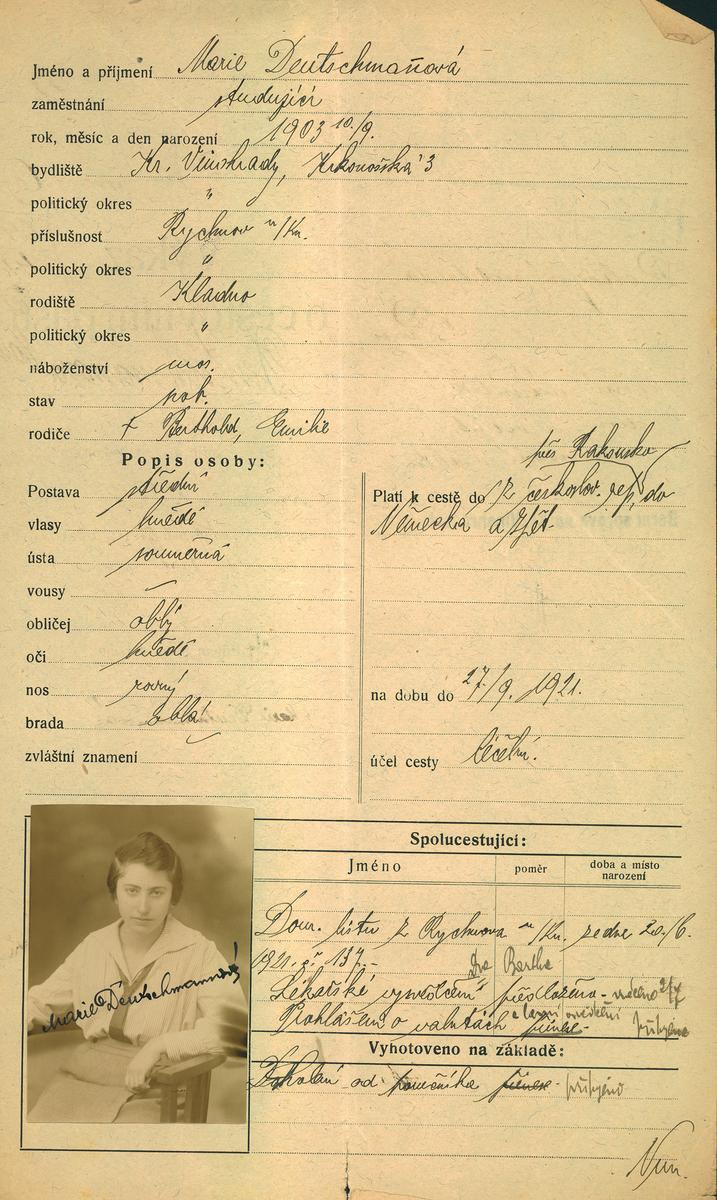 Jméno a příjmení Marie Deutschmanová
zaměstnání studující
rok, měsíc a den narození 1903 10/9.
bydliště Kr. Vinohrady, Krkonošská 3
politický okres "
příslušnost Rychnov n/Kn.
politický okres "
rodiště Kladno
politický okres "
náboženství mos.
stav
rodiče † Berthold, Emilie
Popis osoby:
Postava střední
vlasy hnědé
ústa souměrná
vousy —
obličej oblý
oči hnědé
nos rovný
brada oblá
zvláštní znamení —
přes Rakousko
Platí k cestě do z českoslov. rep. do
Německa a zpět
na dobu do 27/9. 1921.
účel cesty léčební.
Marie Deutschmannová
Spolucestující:
Jméno poměr doba a místo narození
Dom. listu z Rychnova n/Kn. ze dne 20./6.
1921. č. 137.-
Dra Bertha
Lékařské vysvědčení předloženo -
Prohlášení o valutách
Vyhotoveno na základě:
od poručníka